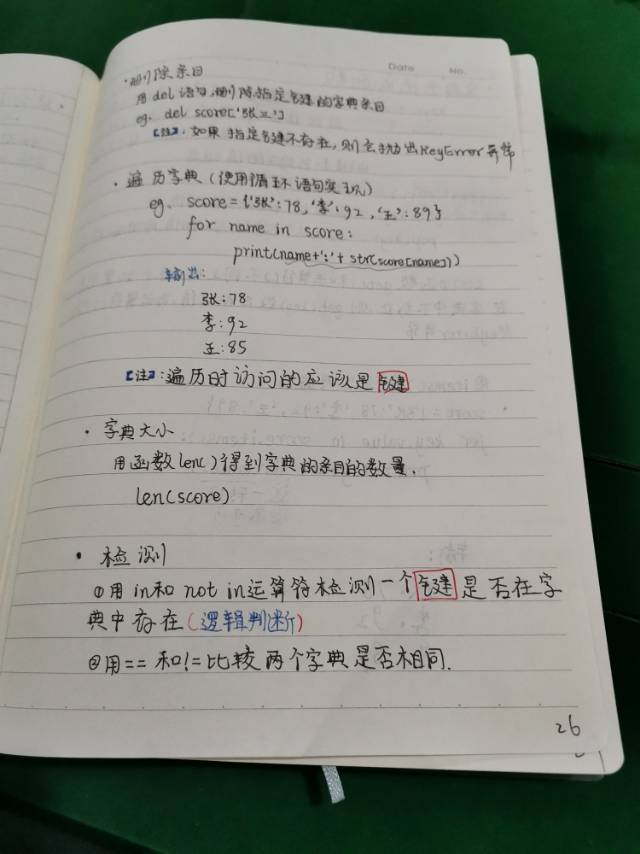 Date No.
·删除条目
用del语句,删除指定键的字典条目
eg. del score['张三']
【注】:如果指定键不存在,则会抛出KeyError异常
·遍历字典(使用循环语句实现)
eg. score={'张':78,'李':92,'王':89}
for name in score:
print(name+':'+str(score[name]))
输出:
张:78
李:92
王:85
【注】:遍历时访问的应该是键
·字典大小
用函数len()得到字典的条目的数量.
len(score)
·检测
①用in和not in运算符检测一个键是否在字
典中存在(逻辑判断)
②用==和!=比较两个字典是否相同.
26